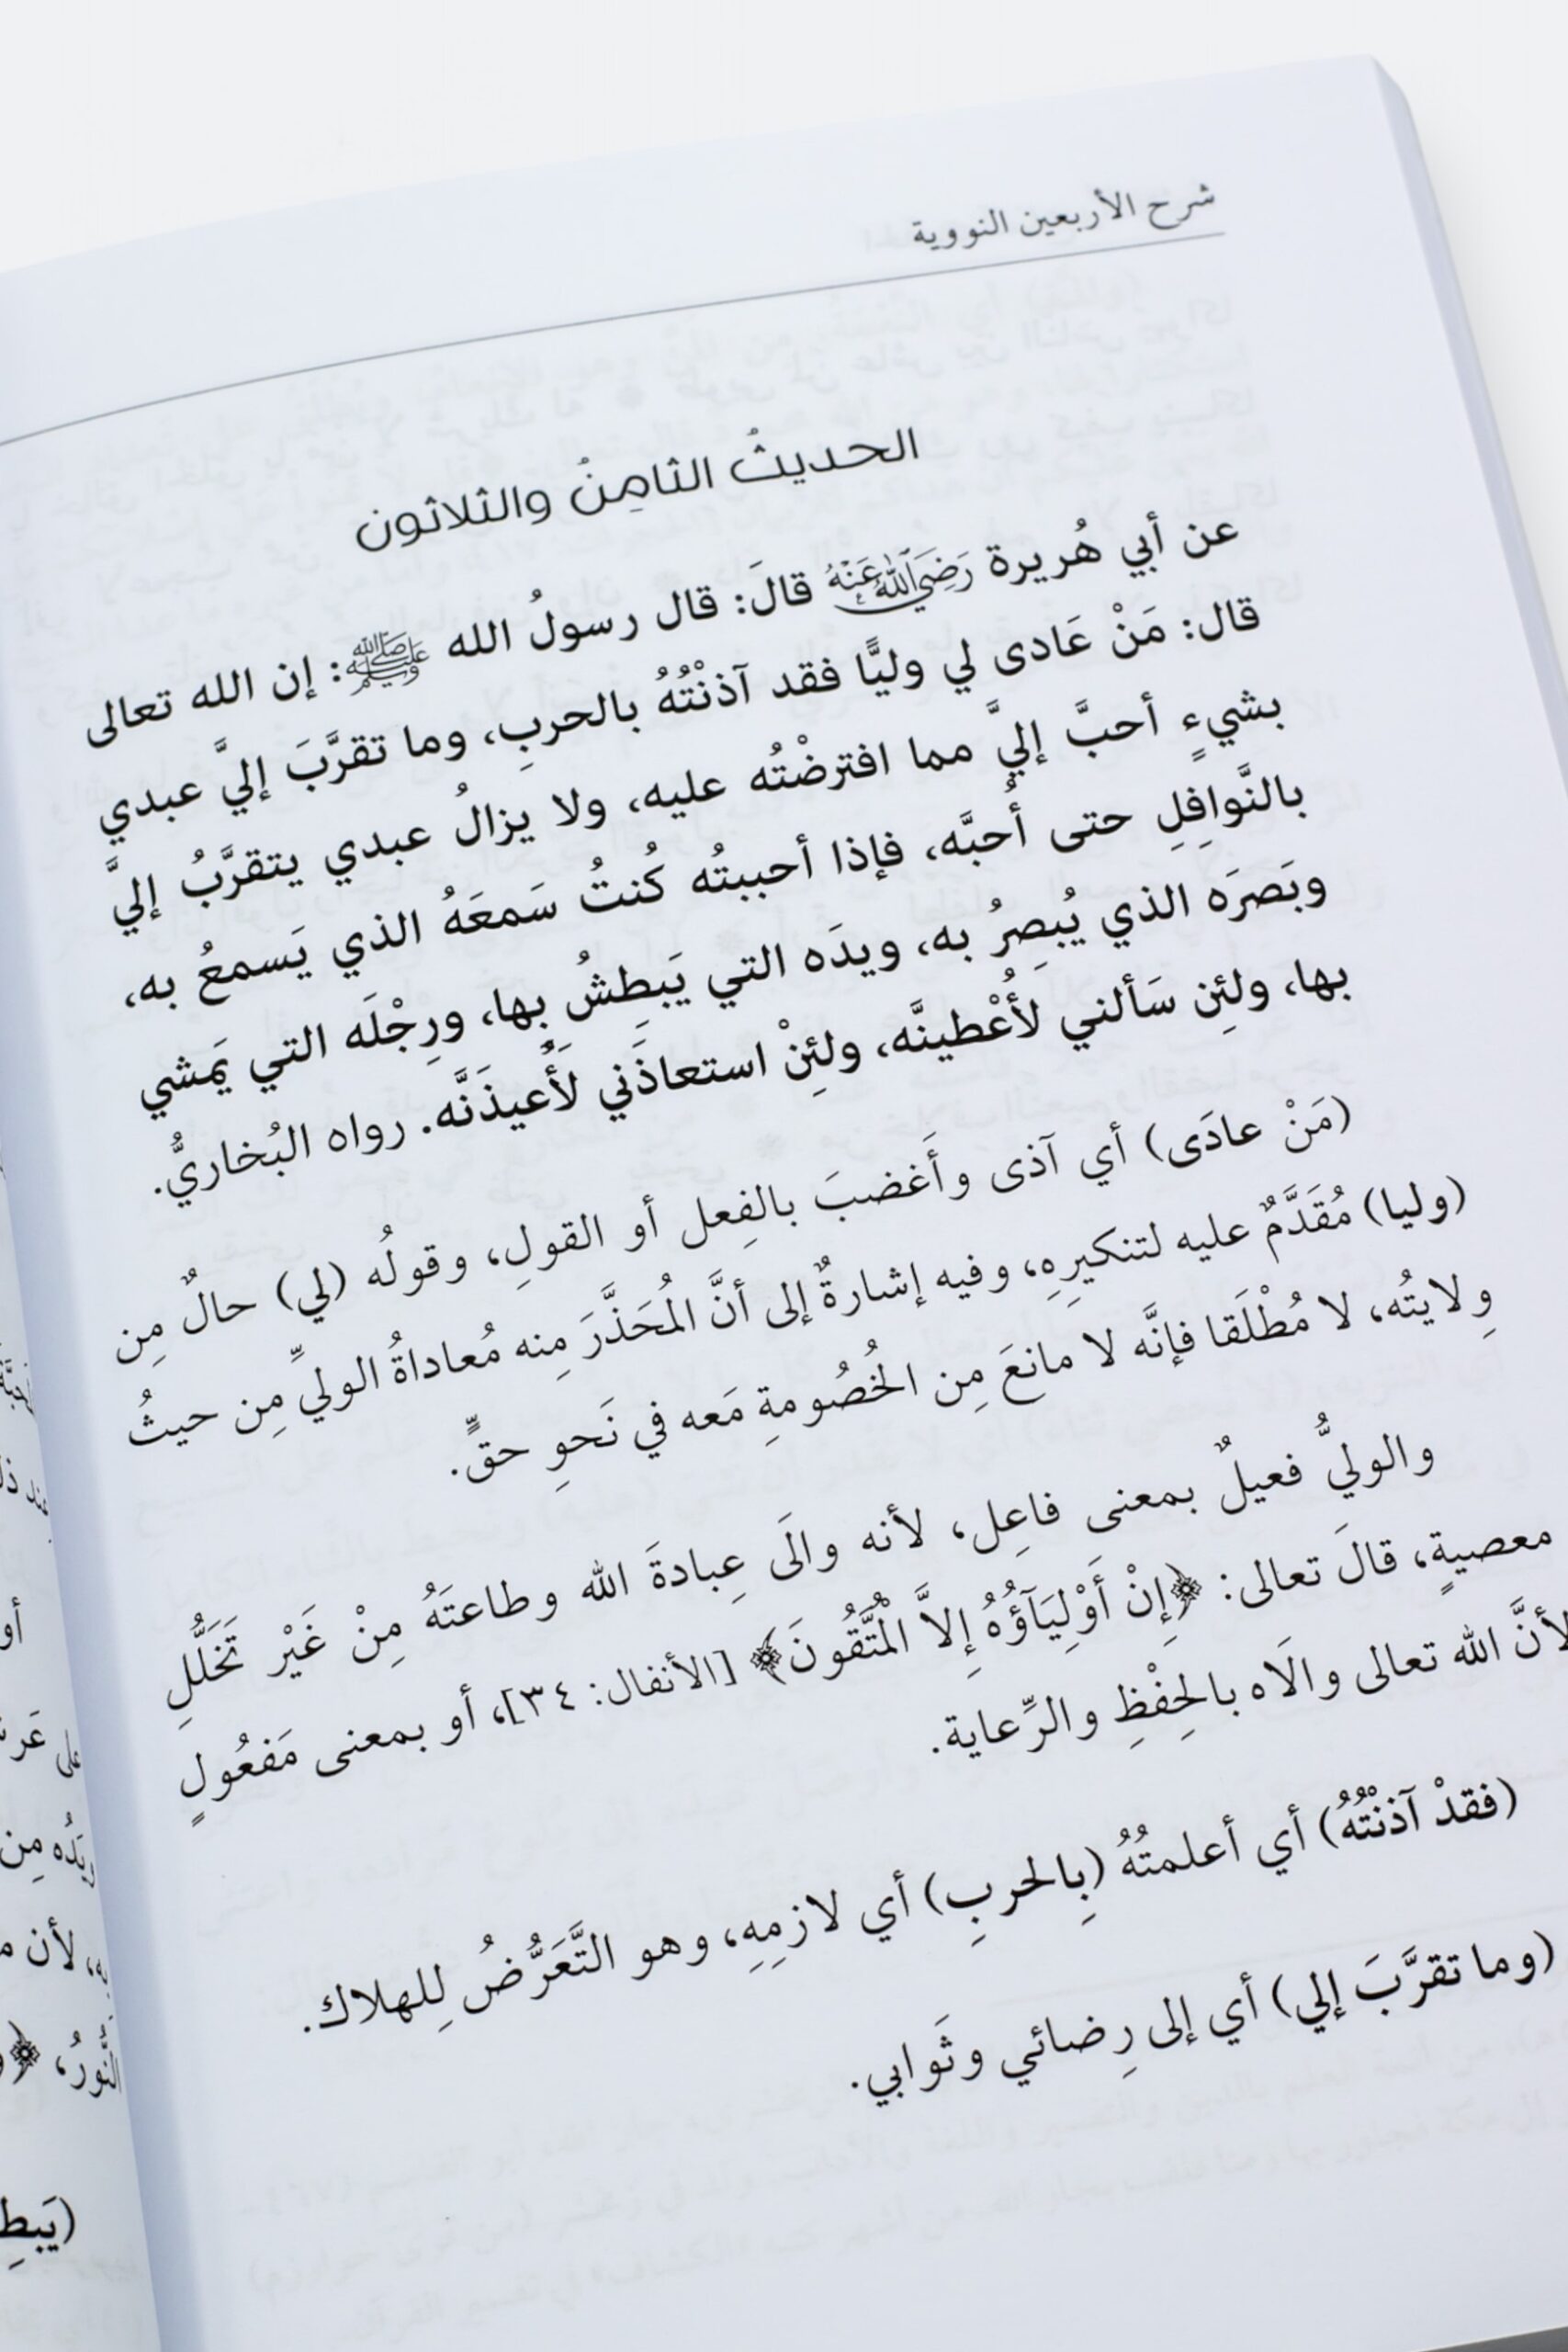 شرح الأربعين النووية
الحديثُ الثامِنُ والثلاثون
عن أبي هُريرة رَضِيَ اللهُ عَنْهُ قالَ: قال رسولُ الله ﷺ: إن الله تعالى
قال: مَنْ عَادى لي وليًّا فقد آذنْتُهُ بالحربِ، وما تقرَّبَ إليَّ عبدي
بشيءٍ أحبَّ إليَّ مما افترضْتُه عليه، ولا يزالُ عبدي يتقرَّبُ إليَّ
بالنَّوافِلِ حتى أُحبَّه، فإذا أحببتُه كُنتُ سَمعَهُ الذي يَسمعُ به،
وبَصرَه الذي يُبصِرُ به، ويدَه التي يَبطِشُ بِها، ورِجْلَه التي يَمشي
بها، ولئِن سَألني لأُعْطينَّه، ولئِنْ استعاذَني لَأُعيذَنَّه. رواه البُخاريُّ.
(مَنْ عادَى) أي آذى وأَغضبَ بالفِعل أو القولِ، وقولُه (لي) حالٌ مِن
(وليا) مُقَدَّمٌ عليه لتنكيرِهِ، وفيه إشارةٌ إلى أنَّ المُحَذَّرَ مِنه مُعاداةُ الوليِّ مِن حيثُ
وِلايتُه، لا مُطْلَقا فإنَّه لا مانعَ مِن الخُصُومةِ مَعه في نَحوِ حقٍّ.
والوليُّ فعيلٌ بمعنى فاعِل، لأنه والَى عِبادةَ الله وطاعتَهُ مِنْ غَيْر تَخَلُّلِ
معصيةٍ، قالَ تعالى: ﴿إِنْ أَوْلِيَآؤُهُ إِلاَّ الْمُتَّقُونَ﴾ [الأنفال: ٣٤]، أو بمعنى مَفعُولٍ
لأنَّ الله تعالى والَاه بالحِفْظِ والرِّعاية.
(فقدْ آذنْتُهُ) أي أعلمتُهُ (بِالحربِ) أي لازمِهِ، وهو التَّعَرُّضُ لِلهلاك.
(وما تقرَّبَ إلي) أي إلى رِضائي وثَوابي.
أو
على
مِن
لأن
النُّورُ،